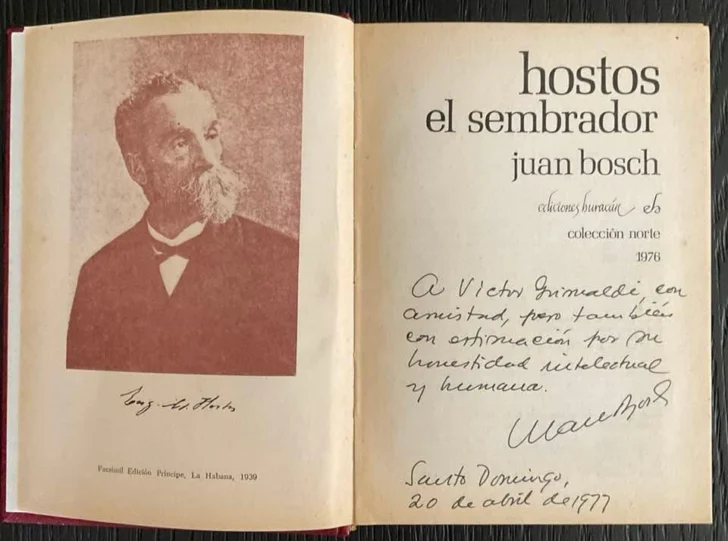 Eug. M. Hostos
Facsímil Edición Príncipe, La Habana, 1939
hostos
el sembrador
juan bosch
ediciones huracán
colección norte
1976
A Víctor Grimaldi, con
amistad, pero también
con estimación por su
honestidad intelectual
y humana.
Juan Bosch
Santo Domingo,
20 de abril de 1977